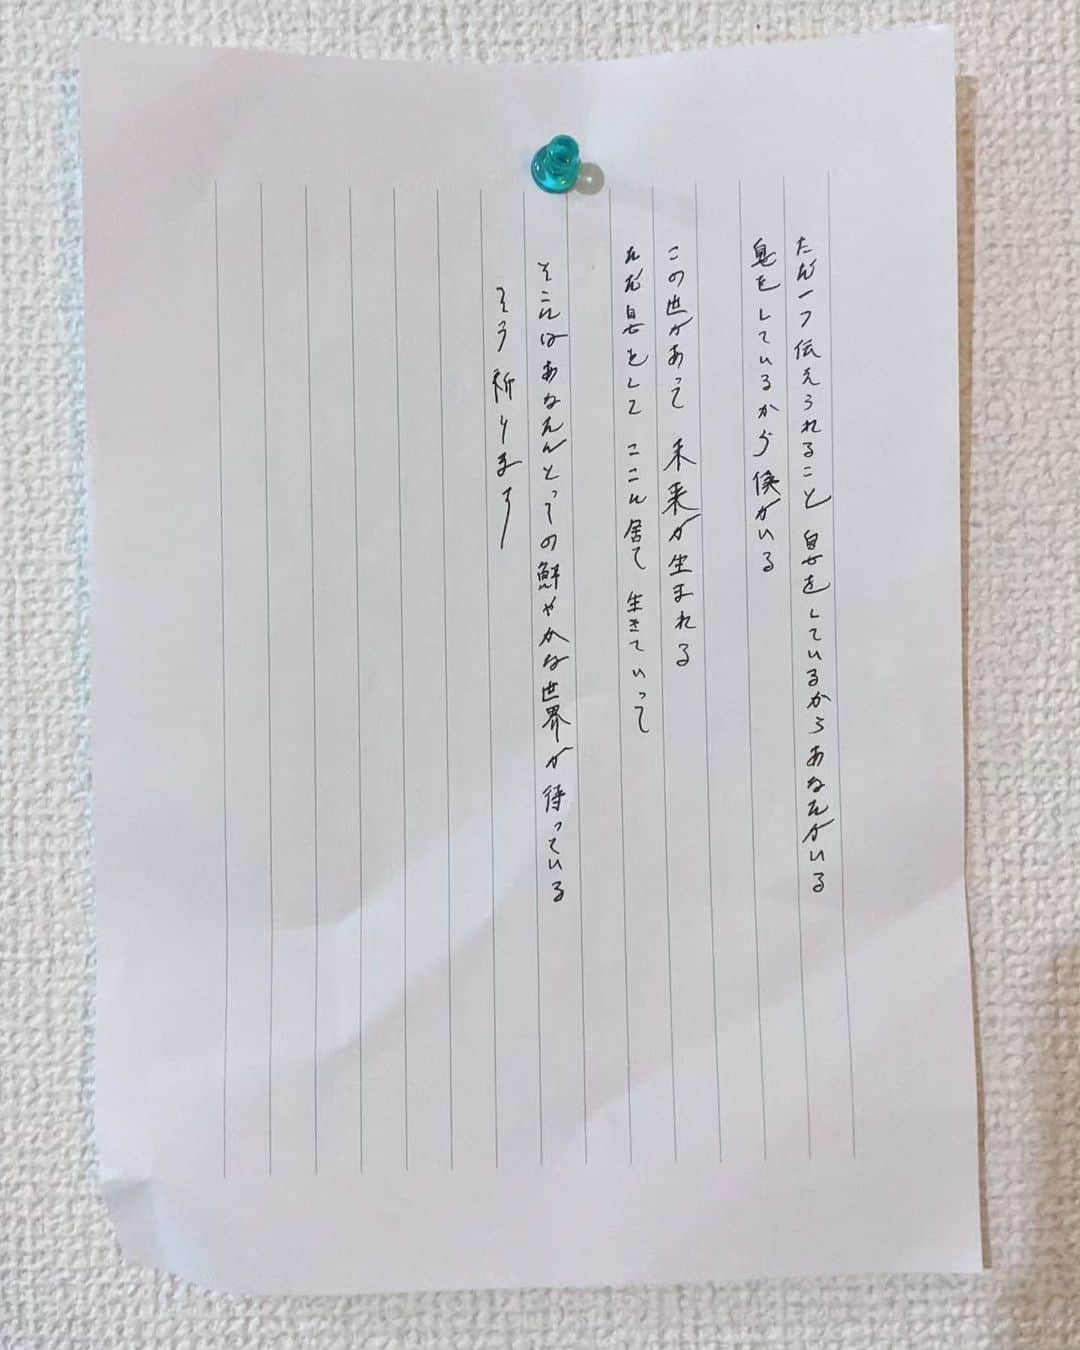 ただ一つ伝えられること 息をしているからあなたがいる
息をしているから僕がいる
この世があって 未来が生まれる
ただ息をして ここに居て 生きていって
そこにはあなたにとっての鮮やかな世界が待っている
そう祈ります